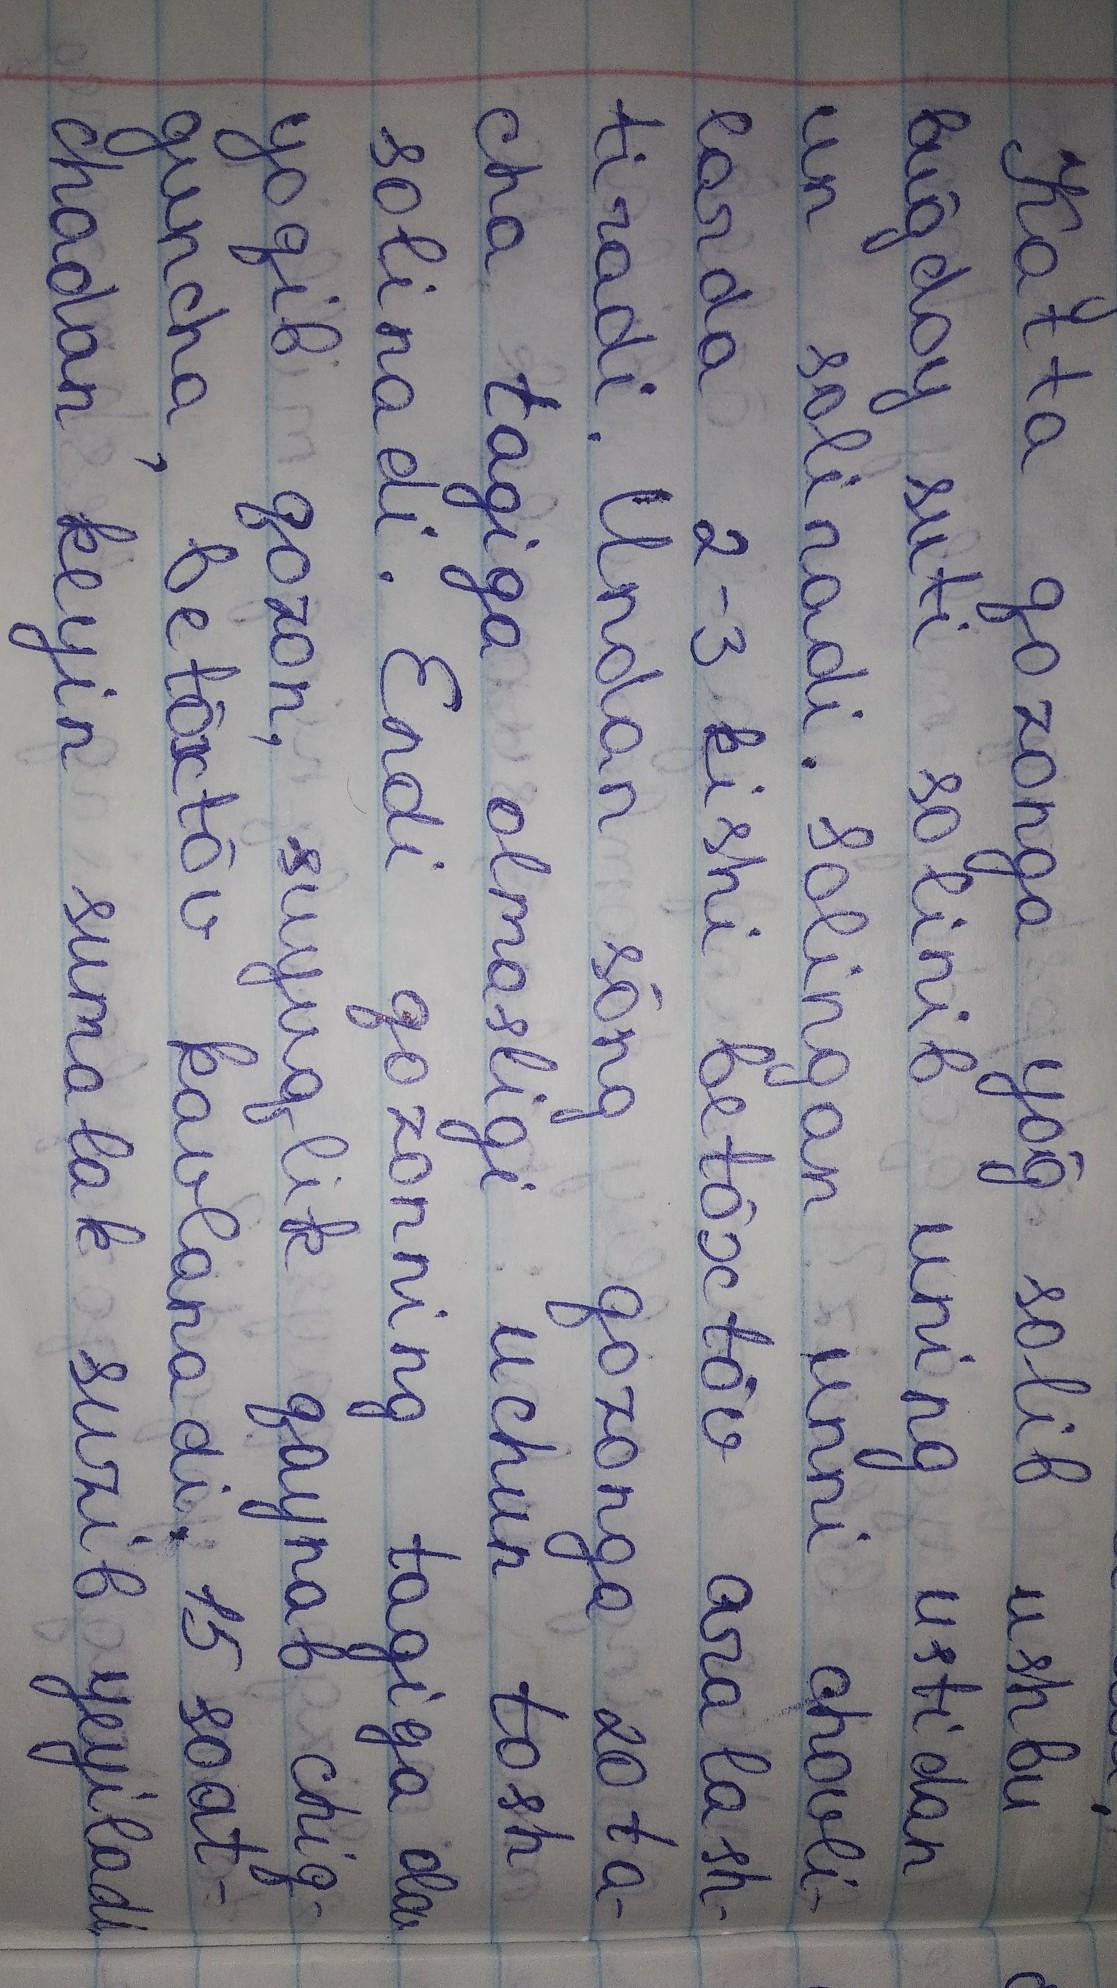 Katta qozonga yôĝ solib ushbu
buĝdoy suti solinib uning ustidan
un solinadi. solingan unni chovli-
larda 2-3 kishi betôxtôv aralash-
tiradi. Undan sông qozonga 20 ta-
cha tagiga olmasligi uchun tosh
solinadi. Endi qozonning tagiga olov
yoqib qozon, suyuqlik qaynab chiq-
guncha, betôxtôv kavlanadi. 15 soat-
chadan keyin sumalak suzib yeyiladi